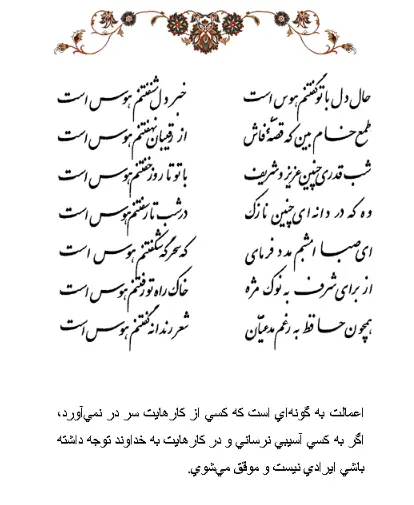 حال دل با تو گفتنم هوس است خبر دل شنفتنم هوس است
طمع خام بین که قصه فاش از رقیبان نهفتنم هوس است
شب قدری چنین عزیز و شریف با تو تا روز خفتنم هوس است
وه که در دانه ای چنین نازک در شب تار سفتنم هوس است
ای صبا امشبم مدد فرمای که سحرگه شکفتنم هوس است
از برای شرف به نوک مژه خاک راه تو رفتنم هوس است
همچون حافظ به رغم مدعیان شعر رندانه گفتنم هوس است
اعمالت به گونه‌اي است که کسي از کارهايت سر در نمي‌آورد،
اگر به کسي آسيبي نرساني و در کارهايت به خداوند توجه داشته
باشي ايرادي نيست و موفق مي‌شوي.